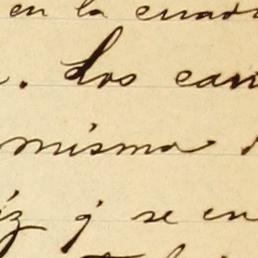 en la cuad
. Los can
misma
iz q se en